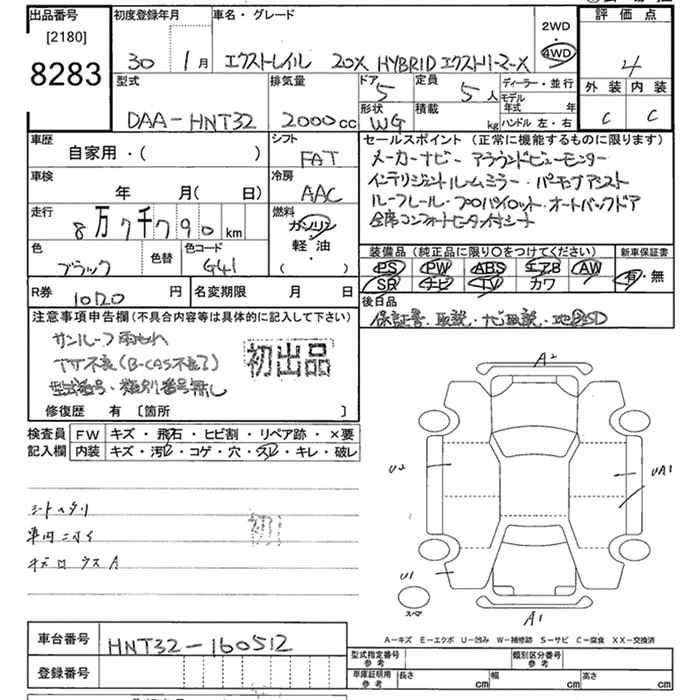 出品番号
[2180]
8283
初度登録年月
30 1月
車名・グレード
エクストレイル 20X HYBRID エクストリーマーX
2WD
・
4WD
評価点
4
外装 内装
C C
型式
DAA-HNT32
排気量
2000cc
ドア
5
定員
5人
ディーラー・並行
モデル年式 年
ハンドル 左・右
形状
WG
積載
kg
車歴
自家用・( )
シフト
FAT
セールスポイント (正常に機能するものに限ります)
メーカーナビー アラウンドビューモニター
インテリジェントルームミラー・パーキングアシスト
ルーフレール・プロパイロット・オートバックドア
全席コンフォートヒーター付シート
車検
年 月( 日)
冷房
AAC
走行
8万7千790km
燃料
ガソリン
軽・油
( )
色
ブラック
色替
色コード
G41
装備品 (純正品に限り○をつけてください)
PS PW ABS エアB AW
SR ナビ TV カワ
新車保証書
有・無
R券
10120 円
名変期限 月 日
後日品
保証書・取説・ナビ取説・地図SD
注意事項申告欄(不具合内容等は具体的に記入して下さい)
サンルーフ雨もれ
TV不良(B-CAS不良)
型式番号・類別番号無し
初出品
修復歴 有 [箇所 ]
検査員記入欄
FW キズ・飛石・ヒビ割・リペア跡・×要
内装 キズ・汚レ・コゲ・穴・スレ・キレ・破レ
シートヘタリ
車内ニオイ
A2
U2
UA1
U1
スペア
A1
A-キズ E-エクボ U-凹み W-補修跡 S-サビ C-腐食 XX-交換済
車台番号
HNT32-160512
登録番号
型式指定番号
参考
類別区分番号
参考
車庫証明用
参考
長さ cm 幅 cm 高さ cm